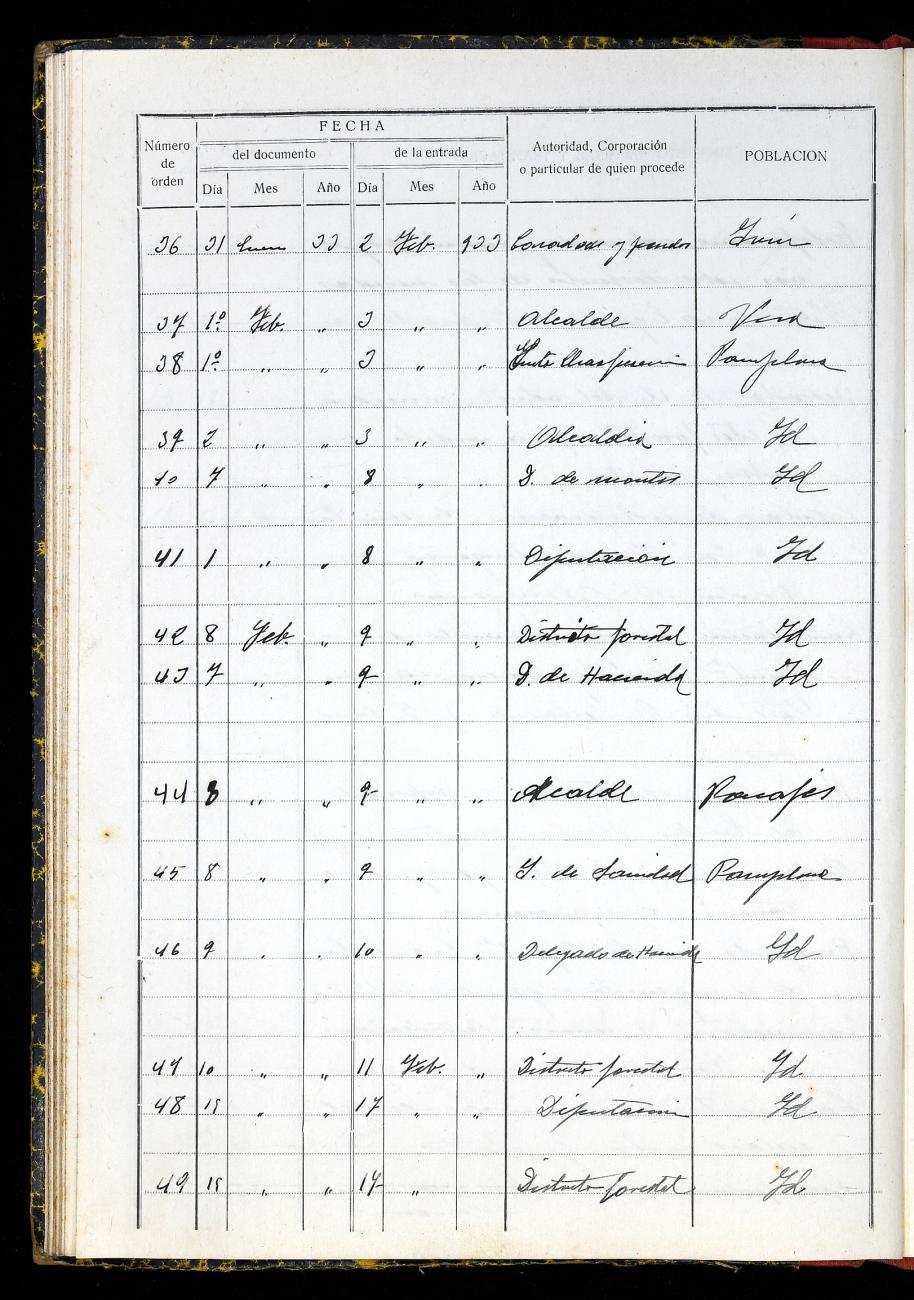 FECHA
Número de orden
del documento
de la entrada
Autoridad, Corporación o particular de quien procede
POBLACION
Día Mes Año Día Mes Año
36 31 Enero 33 2 Feb. 933 y Irún
37 1º Feb. „ 3 „ „ Alcalde Vera
38 1º „ „ 3 „ „ Pamplona
39 2 „ „ 3 „ „ Alcaldia Id
40 7 „ „ 8 „ „ D. de montes Id
41 1 „ „ 8 „ „ Diputación Id
42 8 Feb. „ 9 „ „ Distrito forestal Id
43 7 „ „ 9 „ „ D. de Hacienda Id
44 8 „ „ 9 „ „ Alcalde
45 8 „ „ 9 „ „ I. de Sanidad Pamplona
46 9 „ „ 10 „ „ Delegado de Hacienda Id
47 10 „ „ 11 Feb. „ Distrito forestal Id
48 15 „ „ 17 „ „ Diputacion Id
49 15 „ „ 17 „ Distrito forestal Id